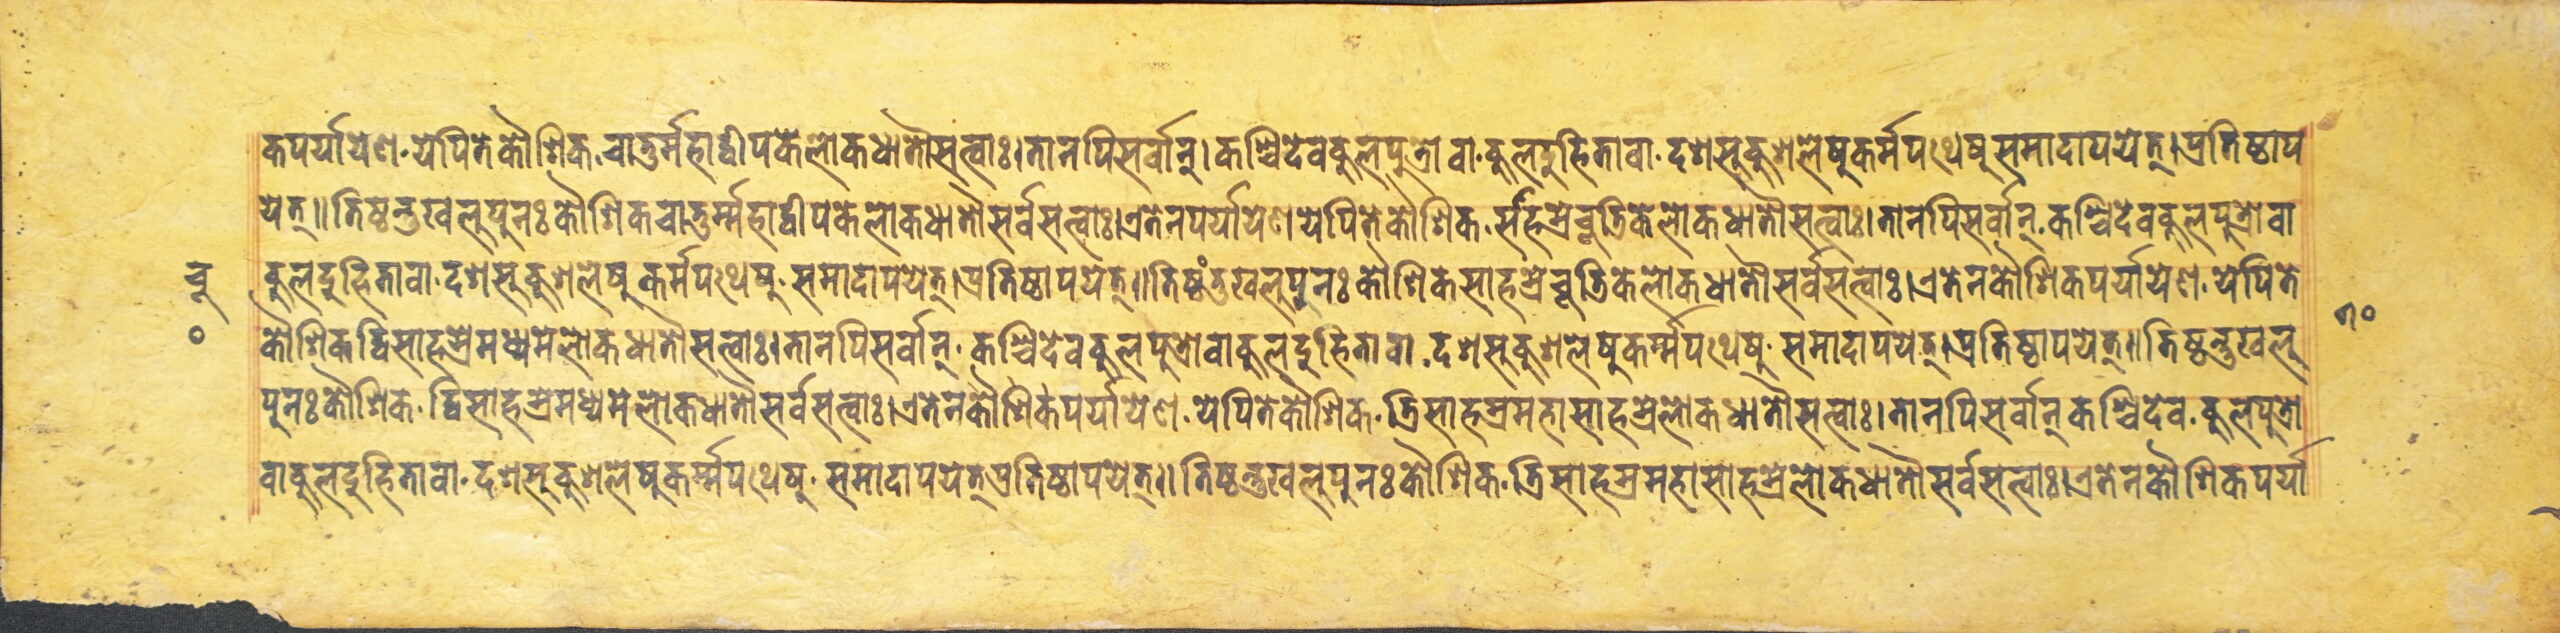 कपर्यायेण॰येपितेकौशिक॰चातुर्महाद्वीपकेलोकधातौसत्वाः।तानपिसर्वान्।कश्चिदेवकुलपुत्रोवा॰कुलदुहितावा॰दशसुकुशलेषुकर्मपथेषुसमादापयेत्।प्रतिष्ठाप
येत्॥तिष्ठन्तुखलुपुनःकौशिकचातुर्म्महाद्वीपेकेलोकधातौसर्वसत्वाः।एतेनपर्यायेणयेपितेकौशिक॰सहस्रेचूडिकेलोकधातौसत्वाः।तानपिसर्वान्॰कश्चिदेवकुलपुत्रोवा
कुलदुहितावा॰दशसुकुशलेषुकर्मपथेषु॰समादापयेत्।प्रतिष्ठापयेत्॥तिष्ठंतुखलुपुनःकौशिकसाहस्रेचूडिकेलोकधातौसर्वसत्वाः।एतेनकौशिकपर्यायेण॰येपिते
कौशिकद्विसाहस्रेमध्यमेलोकधातौसत्वाः।तानपिसर्वान्॰कश्चिदेवकुलपुत्रोवाकुलदुहितावा॰दशसुकुशलेषुकर्म्मपथेषु॰समादापयेत्।प्रतिष्ठापयेत्॥तिष्ठन्तुखलु
पुनःकौशिक॰द्विसाहस्रेमध्यमेलोकधातौसर्वसत्वाः।एतेनकौशिकपर्यायेण॰येपितेकौशिक॰त्रिसाहस्रमहासाहस्रेलोकधातौसत्वाः।तानपिसर्वान्कश्चिदेव॰कुलपुत्रो
वाकुलदुहितावा॰दशसुकुशलेषुकर्म्मपथेषु॰समादापयेत्प्रतिष्ठापयेत्॥तिष्ठन्तुखलुपुनःकौशिक॰त्रिसाहस्रमहासाहस्रेलोकधातौसर्वसत्वाः।एतेनकौशिकपर्या